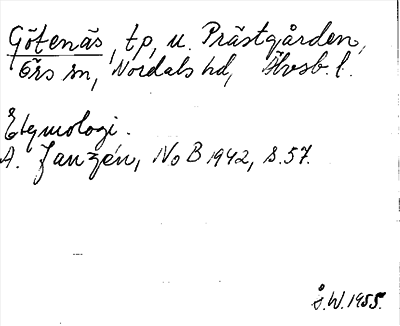 Götenäs, tp, u. Prästgården,
Örs sn, Nordals hd, Älvsb. l.
Etymologi.
A. Janzén, NoB 1942, s. 57.
S.W. 1955.